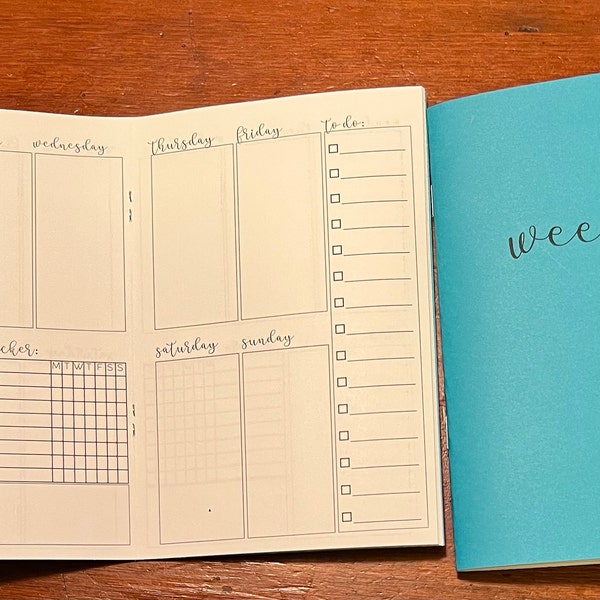 wednesday
thursday
friday
to do:
cker:
M T W T F S S
saturday
sunday
wee